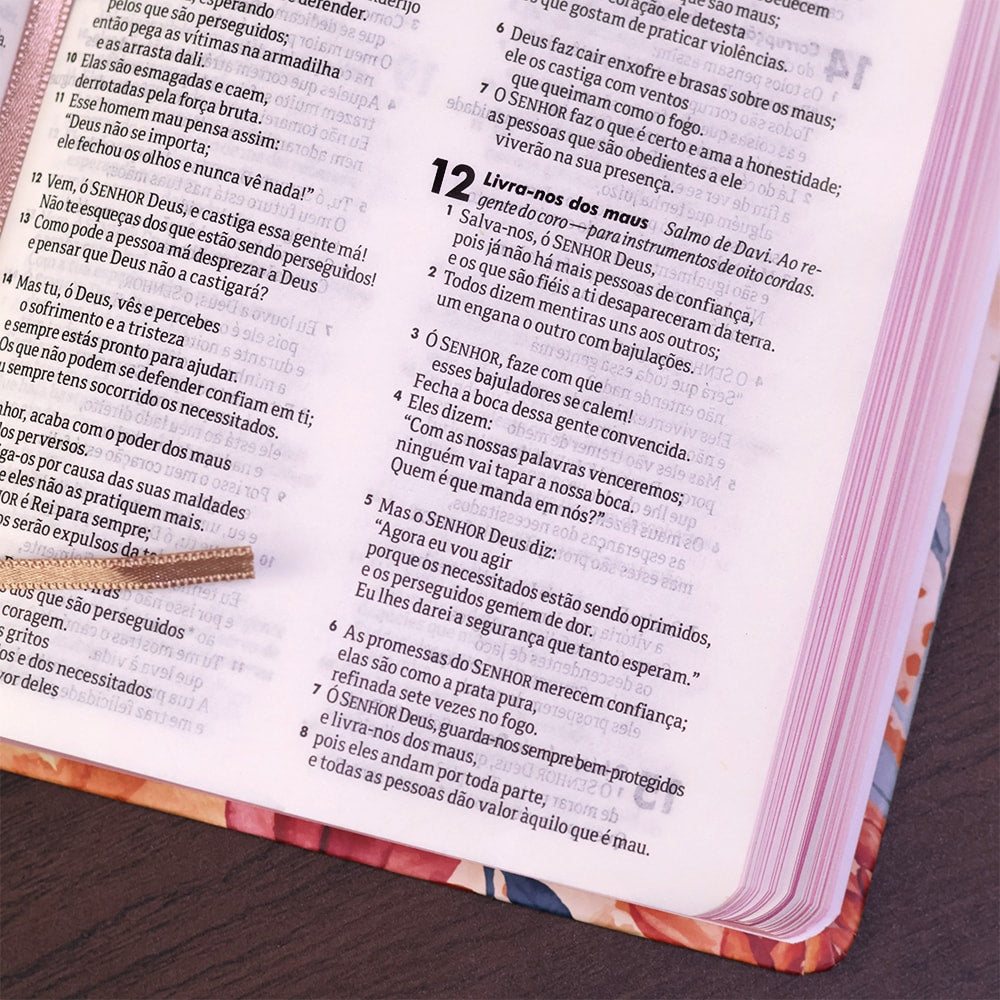 defender.
esperando
pelos que são perseguidos;
então pega as vítimas na armadilha
e as arrasta dali.
10 Elas são esmagadas e caem,
derrotadas pela força bruta.
11 Esse homem mau pensa assim:
“Deus não se importa;
ele fechou os olhos e nunca vê nada!”
12 Vem, ó SENHOR Deus, e castiga essa gente má!
Não te esqueças dos que estão sendo perseguidos!
13 Como pode a pessoa má desprezar a Deus
e pensar que Deus não a castigará?
14 Mas tu, ó Deus, vês e percebes
o sofrimento e a tristeza
e sempre estás pronto para ajudar.
Os que não podem se defender confiam em ti;
sempre tens socorrido os necessitados.
acaba com o poder dos maus
perversos.
por causa das suas maldades
e eles não as pratiquem mais.
é Rei para sempre;
serão expulsos da
que são perseguidos
coragem.
gritos
e dos necessitados
deles
são maus;
coração ele detesta
que gostam de praticar violências.
6 Deus faz cair enxofre e brasas sobre os maus;
ele os castiga com ventos
que queimam como o fogo.
7 O SENHOR faz o que é certo e ama a honestidade;
as pessoas que são obedientes a ele
viverão na sua presença.
12 Livra-nos dos maus Salmo de Davi. Ao re-
gente do coro — para instrumentos de oito cordas.
1 Salva-nos, ó SENHOR Deus,
pois já não há mais pessoas de confiança,
e os que são fiéis a ti desapareceram da terra.
2 Todos dizem mentiras uns aos outros;
um engana o outro com bajulações.
3 Ó SENHOR, faze com que
esses bajuladores se calem!
Fecha a boca dessa gente convencida.
4 Eles dizem:
“Com as nossas palavras venceremos;
ninguém vai tapar a nossa boca.
Quem é que manda em nós?”
5 Mas o SENHOR Deus diz:
“Agora eu vou agir
porque os necessitados estão sendo oprimidos,
e os perseguidos gemem de dor.
Eu lhes darei a segurança que tanto esperam.”
6 As promessas do SENHOR merecem confiança;
elas são como a prata pura,
refinada sete vezes no fogo.
7 Ó SENHOR Deus, guarda-nos sempre bem-protegidos
e livra-nos dos maus,
8 pois eles andam por toda parte,
e todas as pessoas dão valor àquilo que é mau.